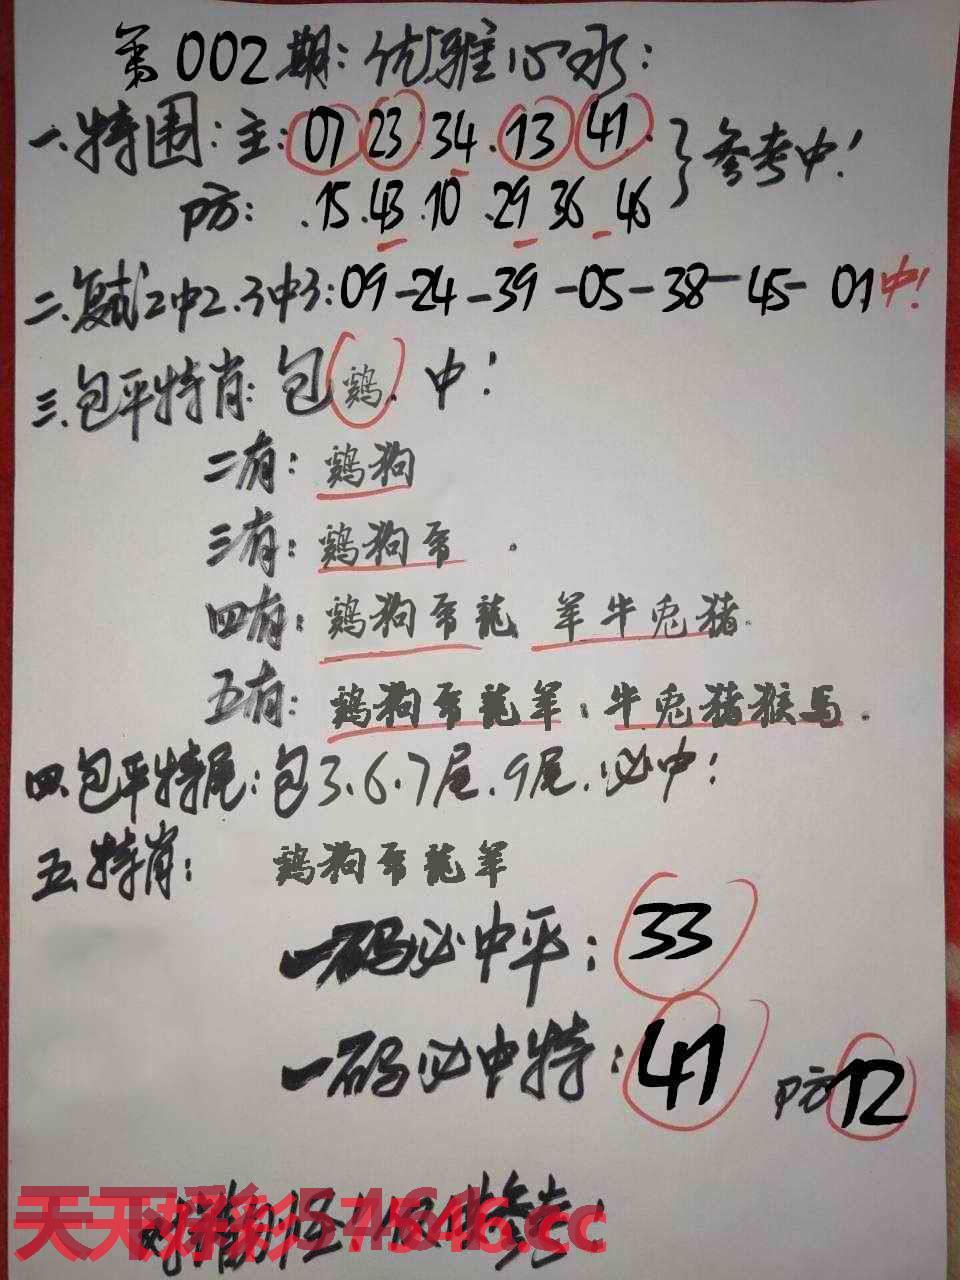 第002期:优雅心水:
一.特围:主:07 23 34.13 41.}参考中!
防:.15.43.10.29 36 46
二.复试2中2.3中3:09-24-39-05-38-45-01中!
三.包平特肖:包鷄.中!
二有:鷄狗
三有:鷄狗帝.
四有:鷄狗帝龍 羊牛兎猪.
五有:鷄狗帝龍羊:牛兎猪猴马.
四.包平特尾:包3.6.7尾.9尾.必中!
五特肖: 鷄狗帝龍羊
一码必中平:33
一码必中特:41 防12
天天好彩
546.cc